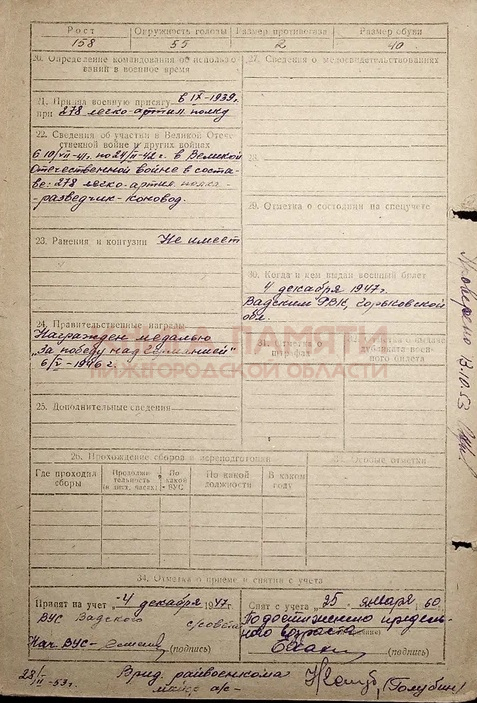 Рост Окружность головы Размер противогаза Размер обуви
158 55 2 40
20. Определение командования об использо-
вании в военное время
21. Принял военную присягу в IX-1939г.
при 278 легко-артил. полку
22. Сведения об участии в Великой Отече-
ственной войне и других войнах
с 10/VII-41г. по 24/II-42г. в Великой
Отечественной войне в соста-
ве: 278 легко-артил полка -
- разведчик-коновод.
23. Ранения и контузии Не имеет
24. Правительственные награды
Награжден медалью
„За победу над Германией"
6/V-1946г.
25. Дополнительные сведения
27. Сведения о медосвидетельствованиях
28.
29. Отметка о состоянии на спецучете
30. Когда и кем выдан военный билет
4 декабря 1947г.
Вадским РВК, Горьковской
обл.
31. Отметка о
штрафах
о выдаче
дубликата воен-
ного билета
КНИГА ПАМЯТИ
НИЖЕГОРОДСКОЙ ОБЛАСТИ
26. Прохождение сборов и переподготовки
Где проходил сборы Продолжи-тельность (в лист. часах) По какой ВУС По какой должности В каком году
33. Особые отметки
34. Отметка о приеме и снятии с учета
Принят на учет „4 декабря 1947г.
ВУС Вадского с/совет
Нач. ВУС- (подпись)
Снят с учета „25 января 60г.
По достижению предель-
ного возраста
(подпись)
28/II-53г. Врид. райвоенкома
майор а/с- (Голубин)
Проверено 13.10.53